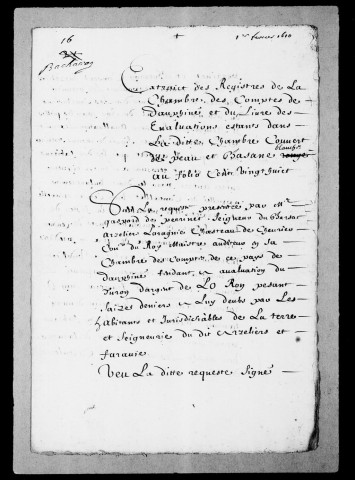 16
1er feurier 1610
Extraict des Registres de La
Chambre des Comptes de
Dauphiné et du Liure des
Eualuations estants dans
La ditte Chambre Couuert
blanche
de Peau et Basane rouge
au folio Cent vingt huict
Sur La requeste presentée par Mre
gaspard de perrinet Seigneur du
Arzeliers Laragnie Chasteau de
Conser du Roy Maistre auditeur en sa
Chambre des Comptes de ce pays de
dauphiné tendant a aualuation du
d'argent de LO Roy pesant
saize deniers a Luy deubs par Les
habitants et Jurisdiciables de La terre
et Seigneurie du dit Arzeliers et
Veu La ditte requeste signé